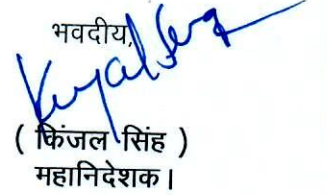 भवदीय,
( किंजल सिंह )
महानिदेशक।